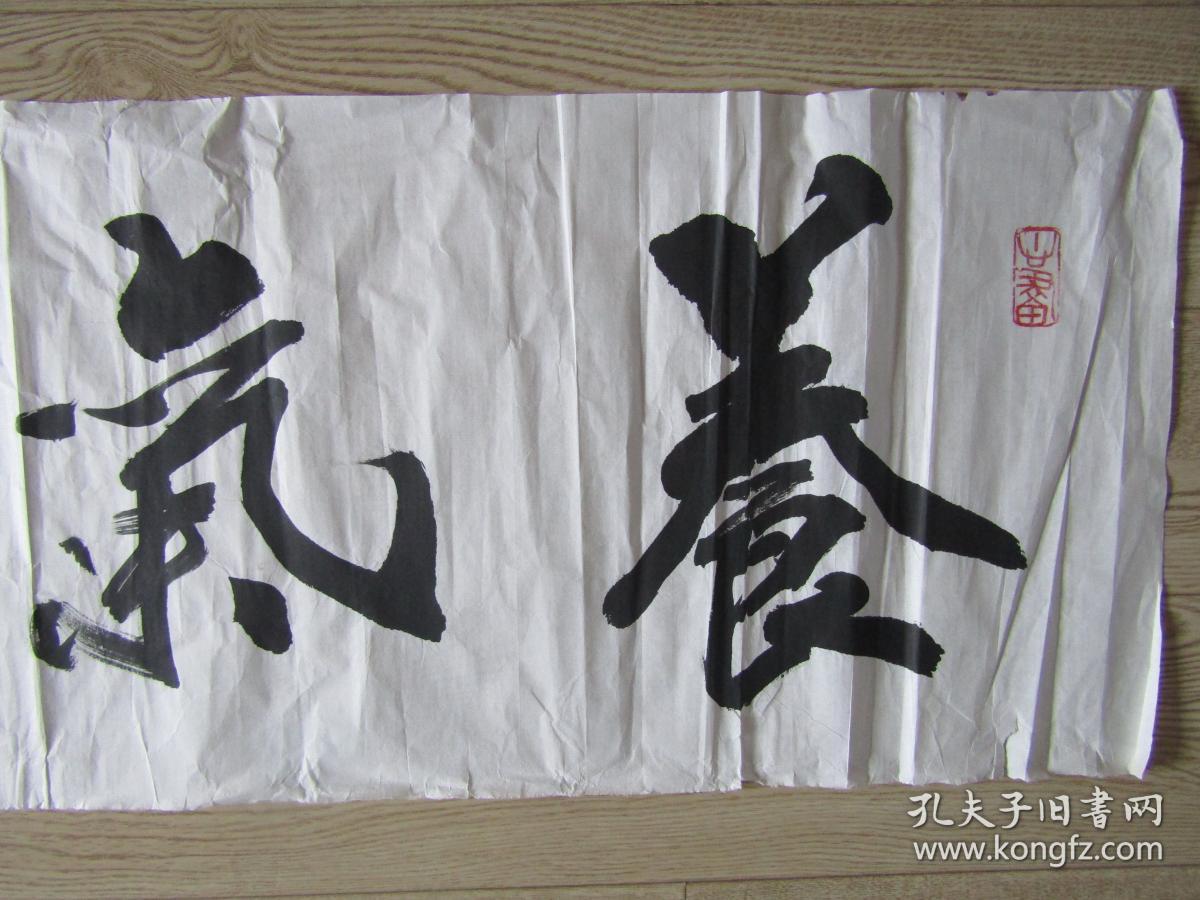 養氣
孔夫子旧書网
www.kongfz.com